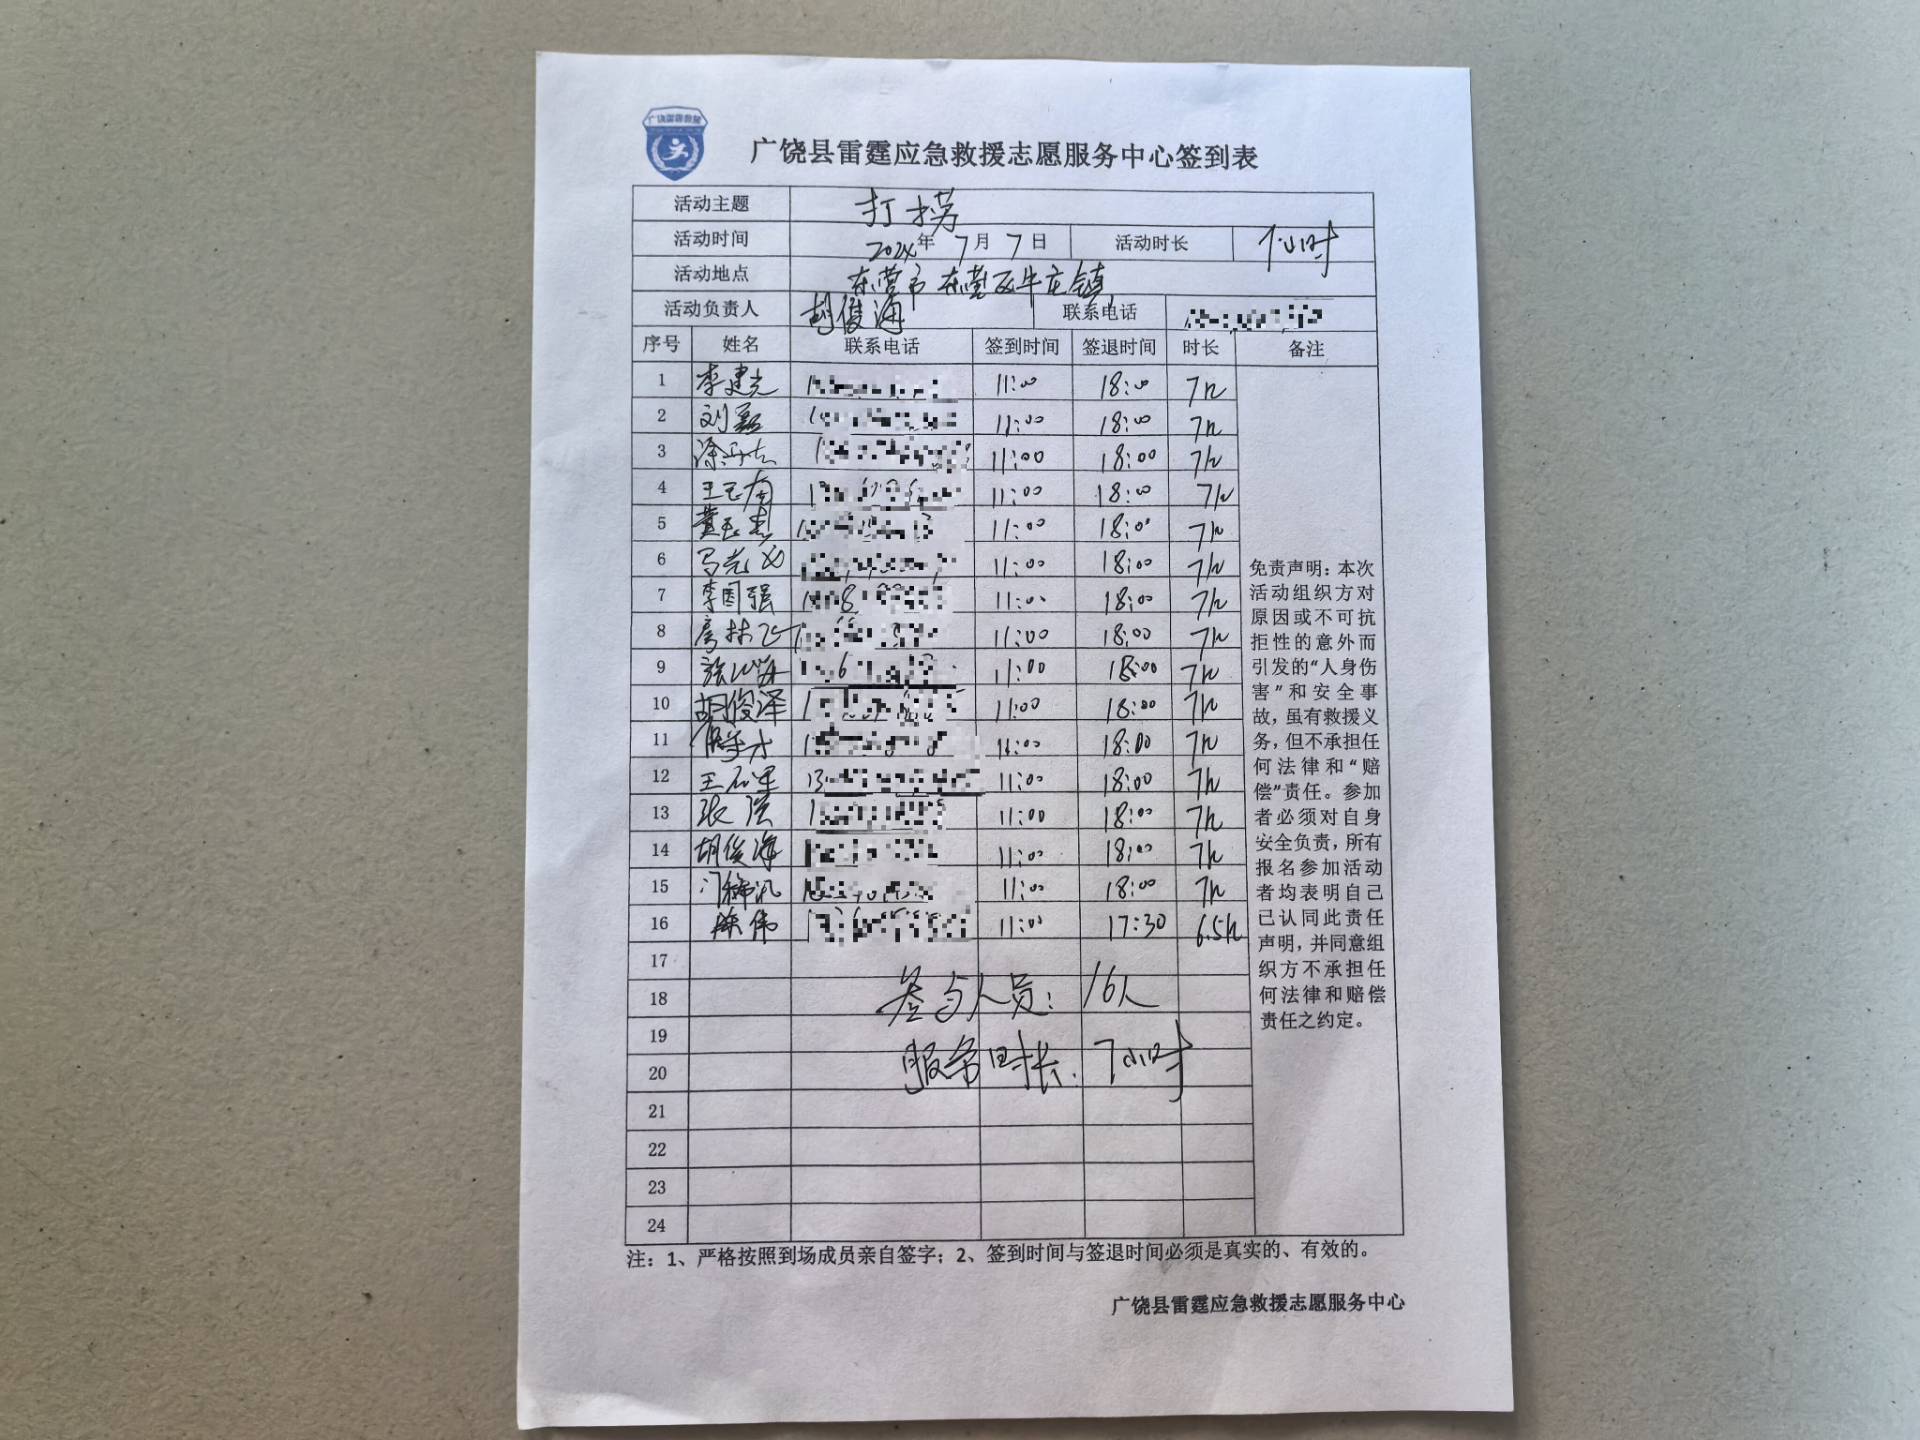 广饶雷霆救援
广饶县雷霆应急救援志愿服务中心签到表
活动主题 打捞
活动时间 2024年 7月 7日 活动时长 7小时
活动地点 东营市东营区牛庄镇
活动负责人 胡俊海 联系电话
序号 姓名 联系电话 签到时间 签退时间 时长 备注
1 李建光 11:00 18:00 7h
2 刘磊 11:00 18:00 7h
3 11:00 18:00 7h
4 王玉南 11:00 18:00 7h
5 董玉杰 11:00 18:00 7h
6 马光义 11:00 18:00 7h
7 李国强 11:00 18:00 7h
8 房林飞 11:00 18:00 7h
9 11:00 18:00 7h
10 胡俊泽 11:00 18:00 7h
11 11:00 18:00 7h
12 王石军 11:00 18:00 7h
13 张强 11:00 18:00 7h
14 胡俊海 11:00 18:00 7h
15 11:00 18:00 7h
16 陈伟 11:00 17:30 6.5h
17
18 参与人员：16人
19
20 服务时长：7小时
21
22
23
24
免责声明：本次
活动组织方对
原因或不可抗
拒性的意外而
引发的“人身伤
害”和安全事
故，虽有救援义
务，但不承担任
何法律和“赔
偿”责任。参加
者必须对自身
安全负责，所有
报名参加活动
者均表明自己
已认同此责任
声明，并同意组
织方不承担任
何法律和赔偿
责任之约定。
注：1、严格按照到场成员亲自签字；2、签到时间与签退时间必须是真实的、有效的。
广饶县雷霆应急救援志愿服务中心